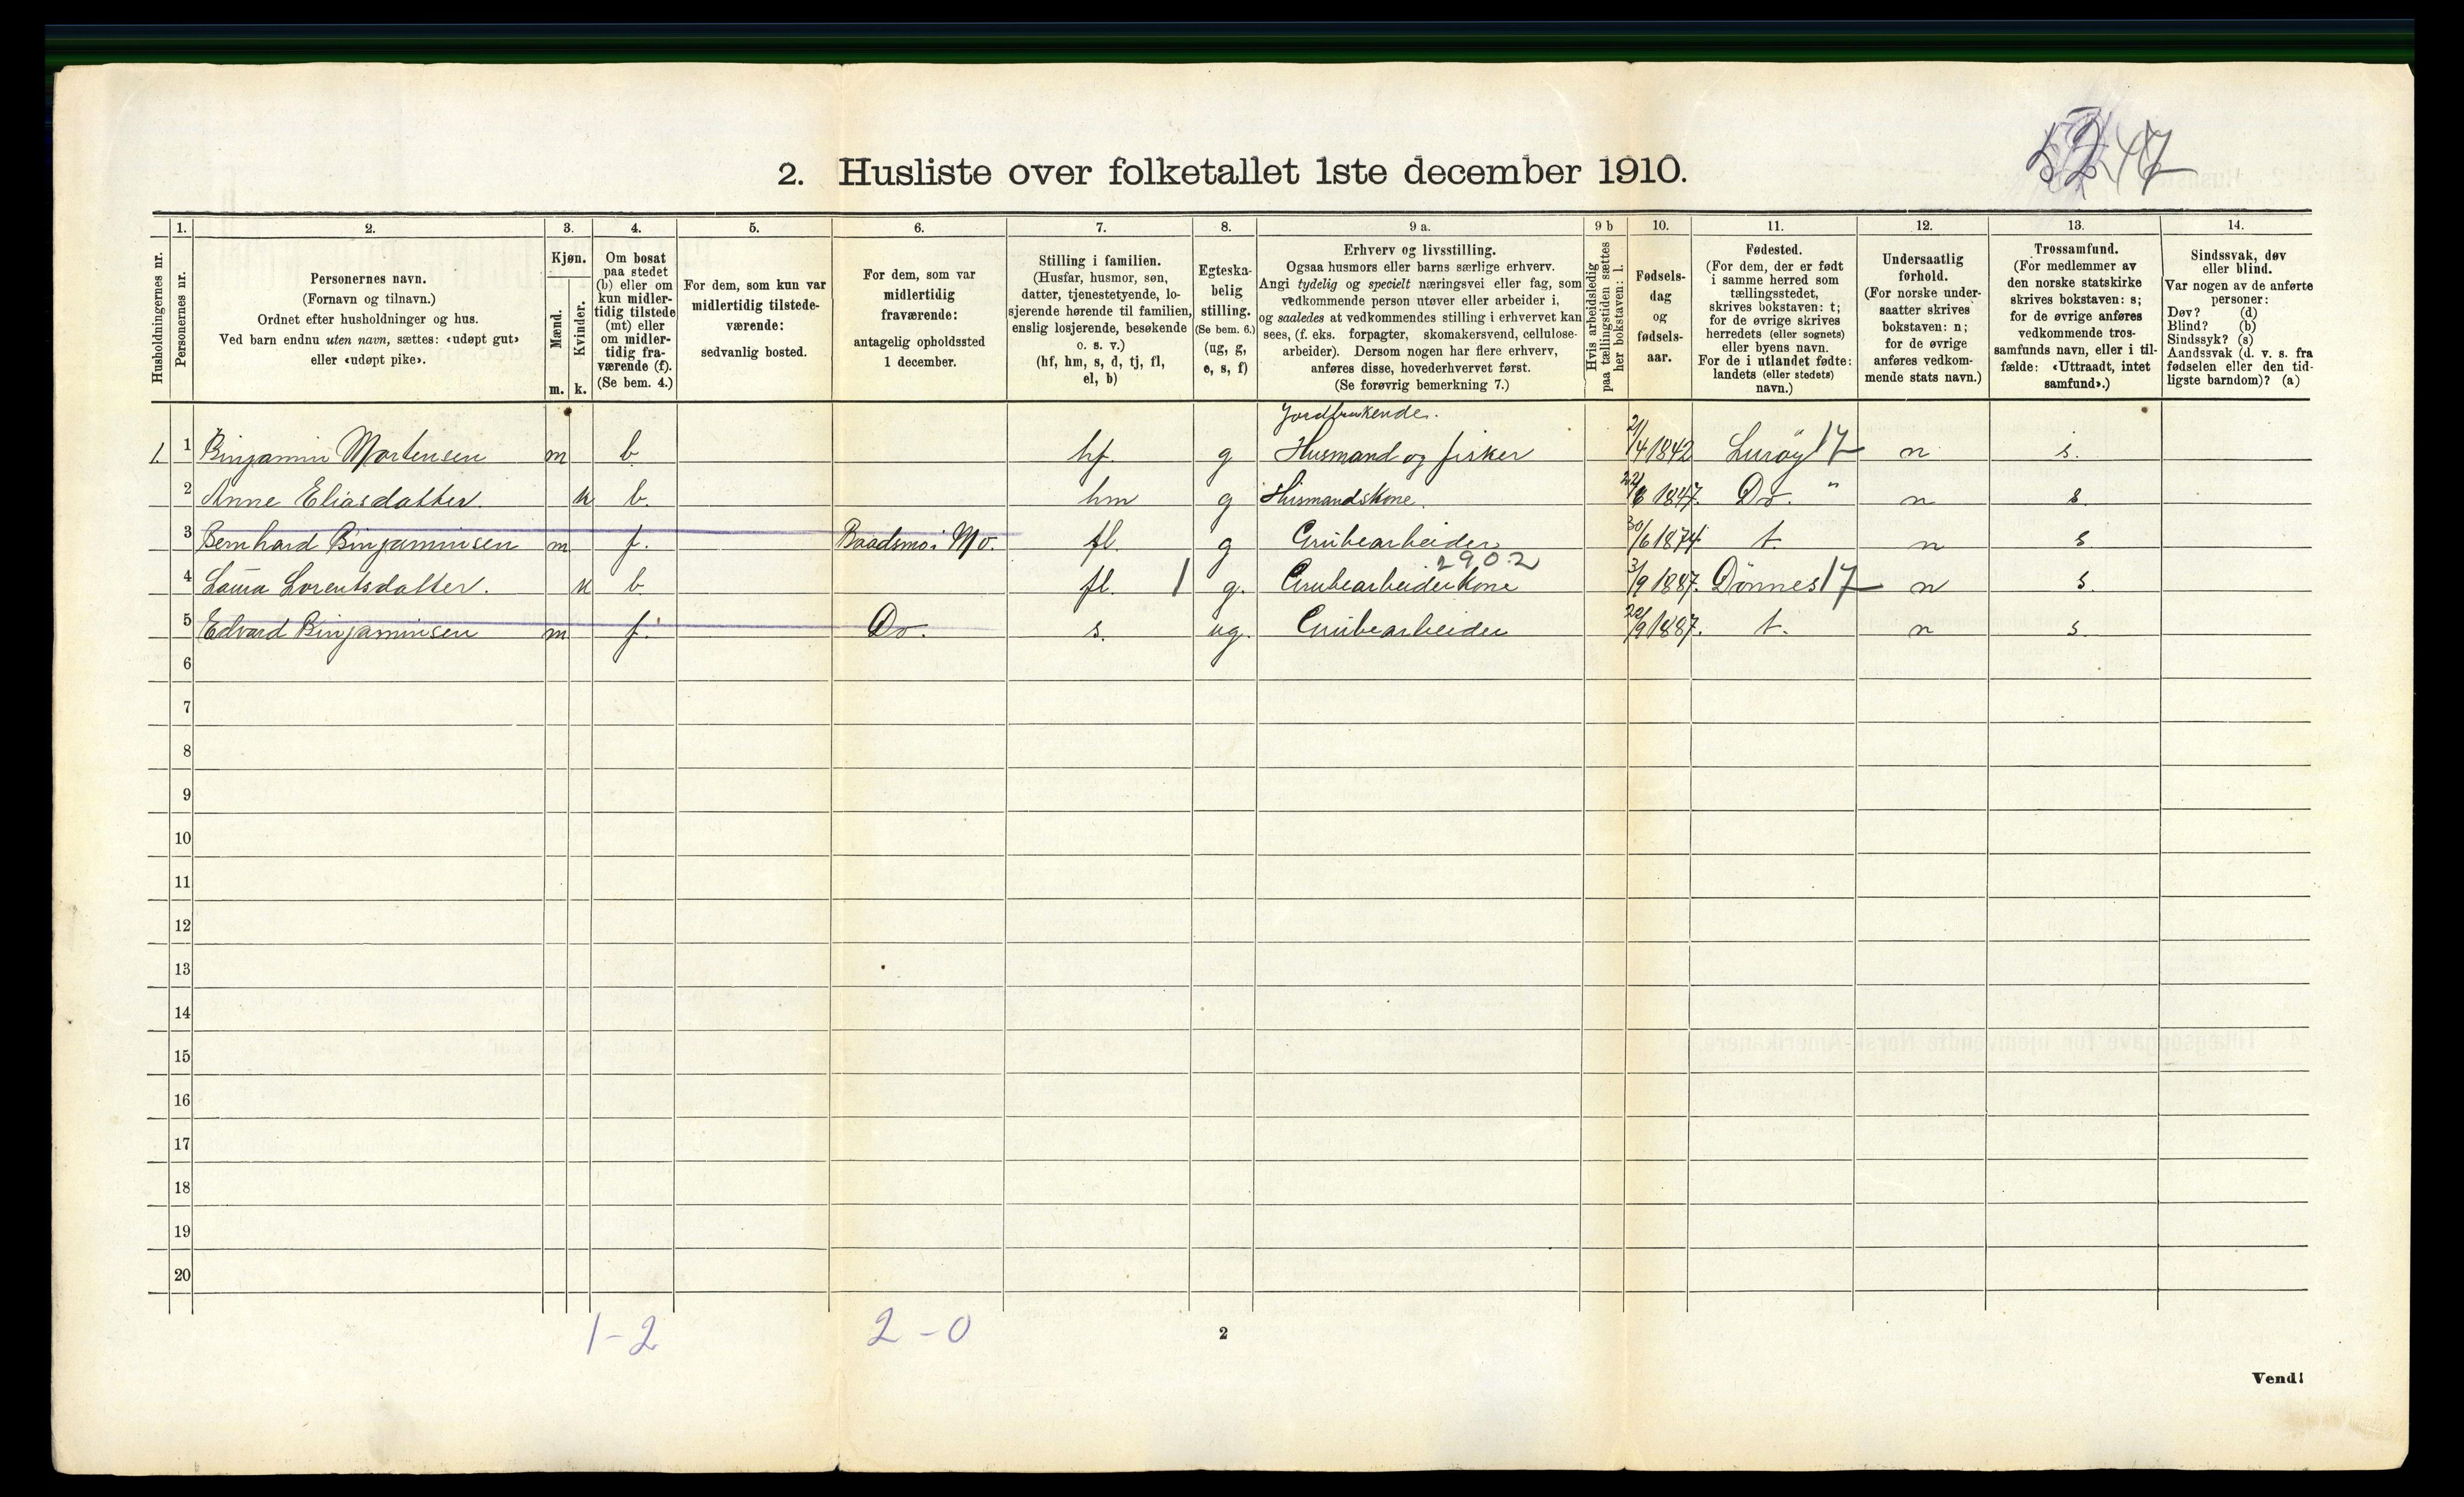 2. Husliste over folketallet 1ste december 1910.
Husholdningernes nr.
1.
Personernes nr.
2.
Personernes navn.
(Fornavn og tilnavn.)
Ordnet efter husholdninger og hus.
Ved barn endnu uten navn, sættes: «udøpt gut»
eller «udøpt pike».
3.
Kjøn.
Mænd.
Kvinder.
m. k.
4.
Om bosat
paa stedet
(b) eller om
kun midler-
tidig tilstede
(mt) eller
om midler-
tidig fra-
værende (f).
(Se bem. 4.)
5.
For dem, som kun var
midlertidig tilstede-
værende:
sedvanlig bosted.
6.
For dem, som var
midlertidig
fraværende:
antagelig opholdssted
1 december.
7.
Stilling i familien.
(Husfar, husmor, søn,
datter, tjenestetyende, lo-
sjerende hørende til familien,
enslig losjerende, besøkende
o. s. v.)
(hf, hm, s, d, tj, fl,
el, b)
8.
Egteska-
belig
stilling.
(Se bem. 6.)
(ug, g,
e, s, f)
9 a.
Erhverv og livsstilling.
Ogsaa husmors eller barns særlige erhverv.
Angi tydelig og specielt næringsvei eller fag, som
vedkommende person utøver eller arbeider i,
og saaledes at vedkommendes stilling i erhvervet kan
sees, (f. eks. forpagter, skomakersvend, cellulose-
arbeider). Dersom nogen har flere erhverv,
anføres disse, hovederhvervet først.
(Se forøvrig bemerkning 7.)
9 b
Hvis arbeidsledig
paa tællingstiden sættes
her bokstaven: l.
10.
Fødsels-
dag
og
fødsels-
aar.
11.
Fødested.
(For dem, der er født
i samme herred som
tællingsstedet,
skrives bokstaven: t;
for de øvrige skrives
herredets (eller sognets)
eller byens navn.
For de i utlandet fødte:
landets (eller stedets)
navn.)
12.
Undersaatlig
forhold.
(For norske under-
saatter skrives
bokstaven: n;
for de øvrige
anføres vedkom-
mende stats navn.)
13.
Trossamfund.
(For medlemmer av
den norske statskirke
skrives bokstaven: s;
for de øvrige anføres
vedkommende tros-
samfunds navn, eller i til-
fælde: «Uttraadt, intet
samfund».)
14.
Sindssvak, døv
eller blind.
Var nogen av de anførte
personer:
Døv? (d)
Blind? (b)
Sindssyk? (s)
Aandssvak (d. v. s. fra
fødselen eller den tid-
ligste barndom)? (a)
Jordbrukende.
1. 1 Binjamin Mortensen m b hf g Husmand og fisker 21/4 1842 Lurøy 17 n s.
2 Anne Eliasdatter. k b. hm g Husmandskone. 1847. Do. " n s
3 Bernhard Binjaminsen m f. Baadsmo i Mo. fl. g Grubearbeider 30/6 1874 t. n s.
2902
4 Laura Lorentsdatter. k b fl. 1 g. Grubearbeiderkone 3/9 1887. Dönnes 17 n s.
5 Edvard Binjaminsen m f. Do. s. ug. Grubearbeider 22/9 1887. t. n s.
6
7
8
9
10
11
12
13
14
15
16
17
18
19
20
1-2 2-0
2
Vend!